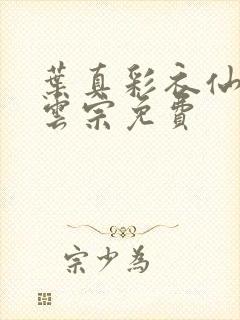 葉真彩衣仙
雲宗免費
宗少為